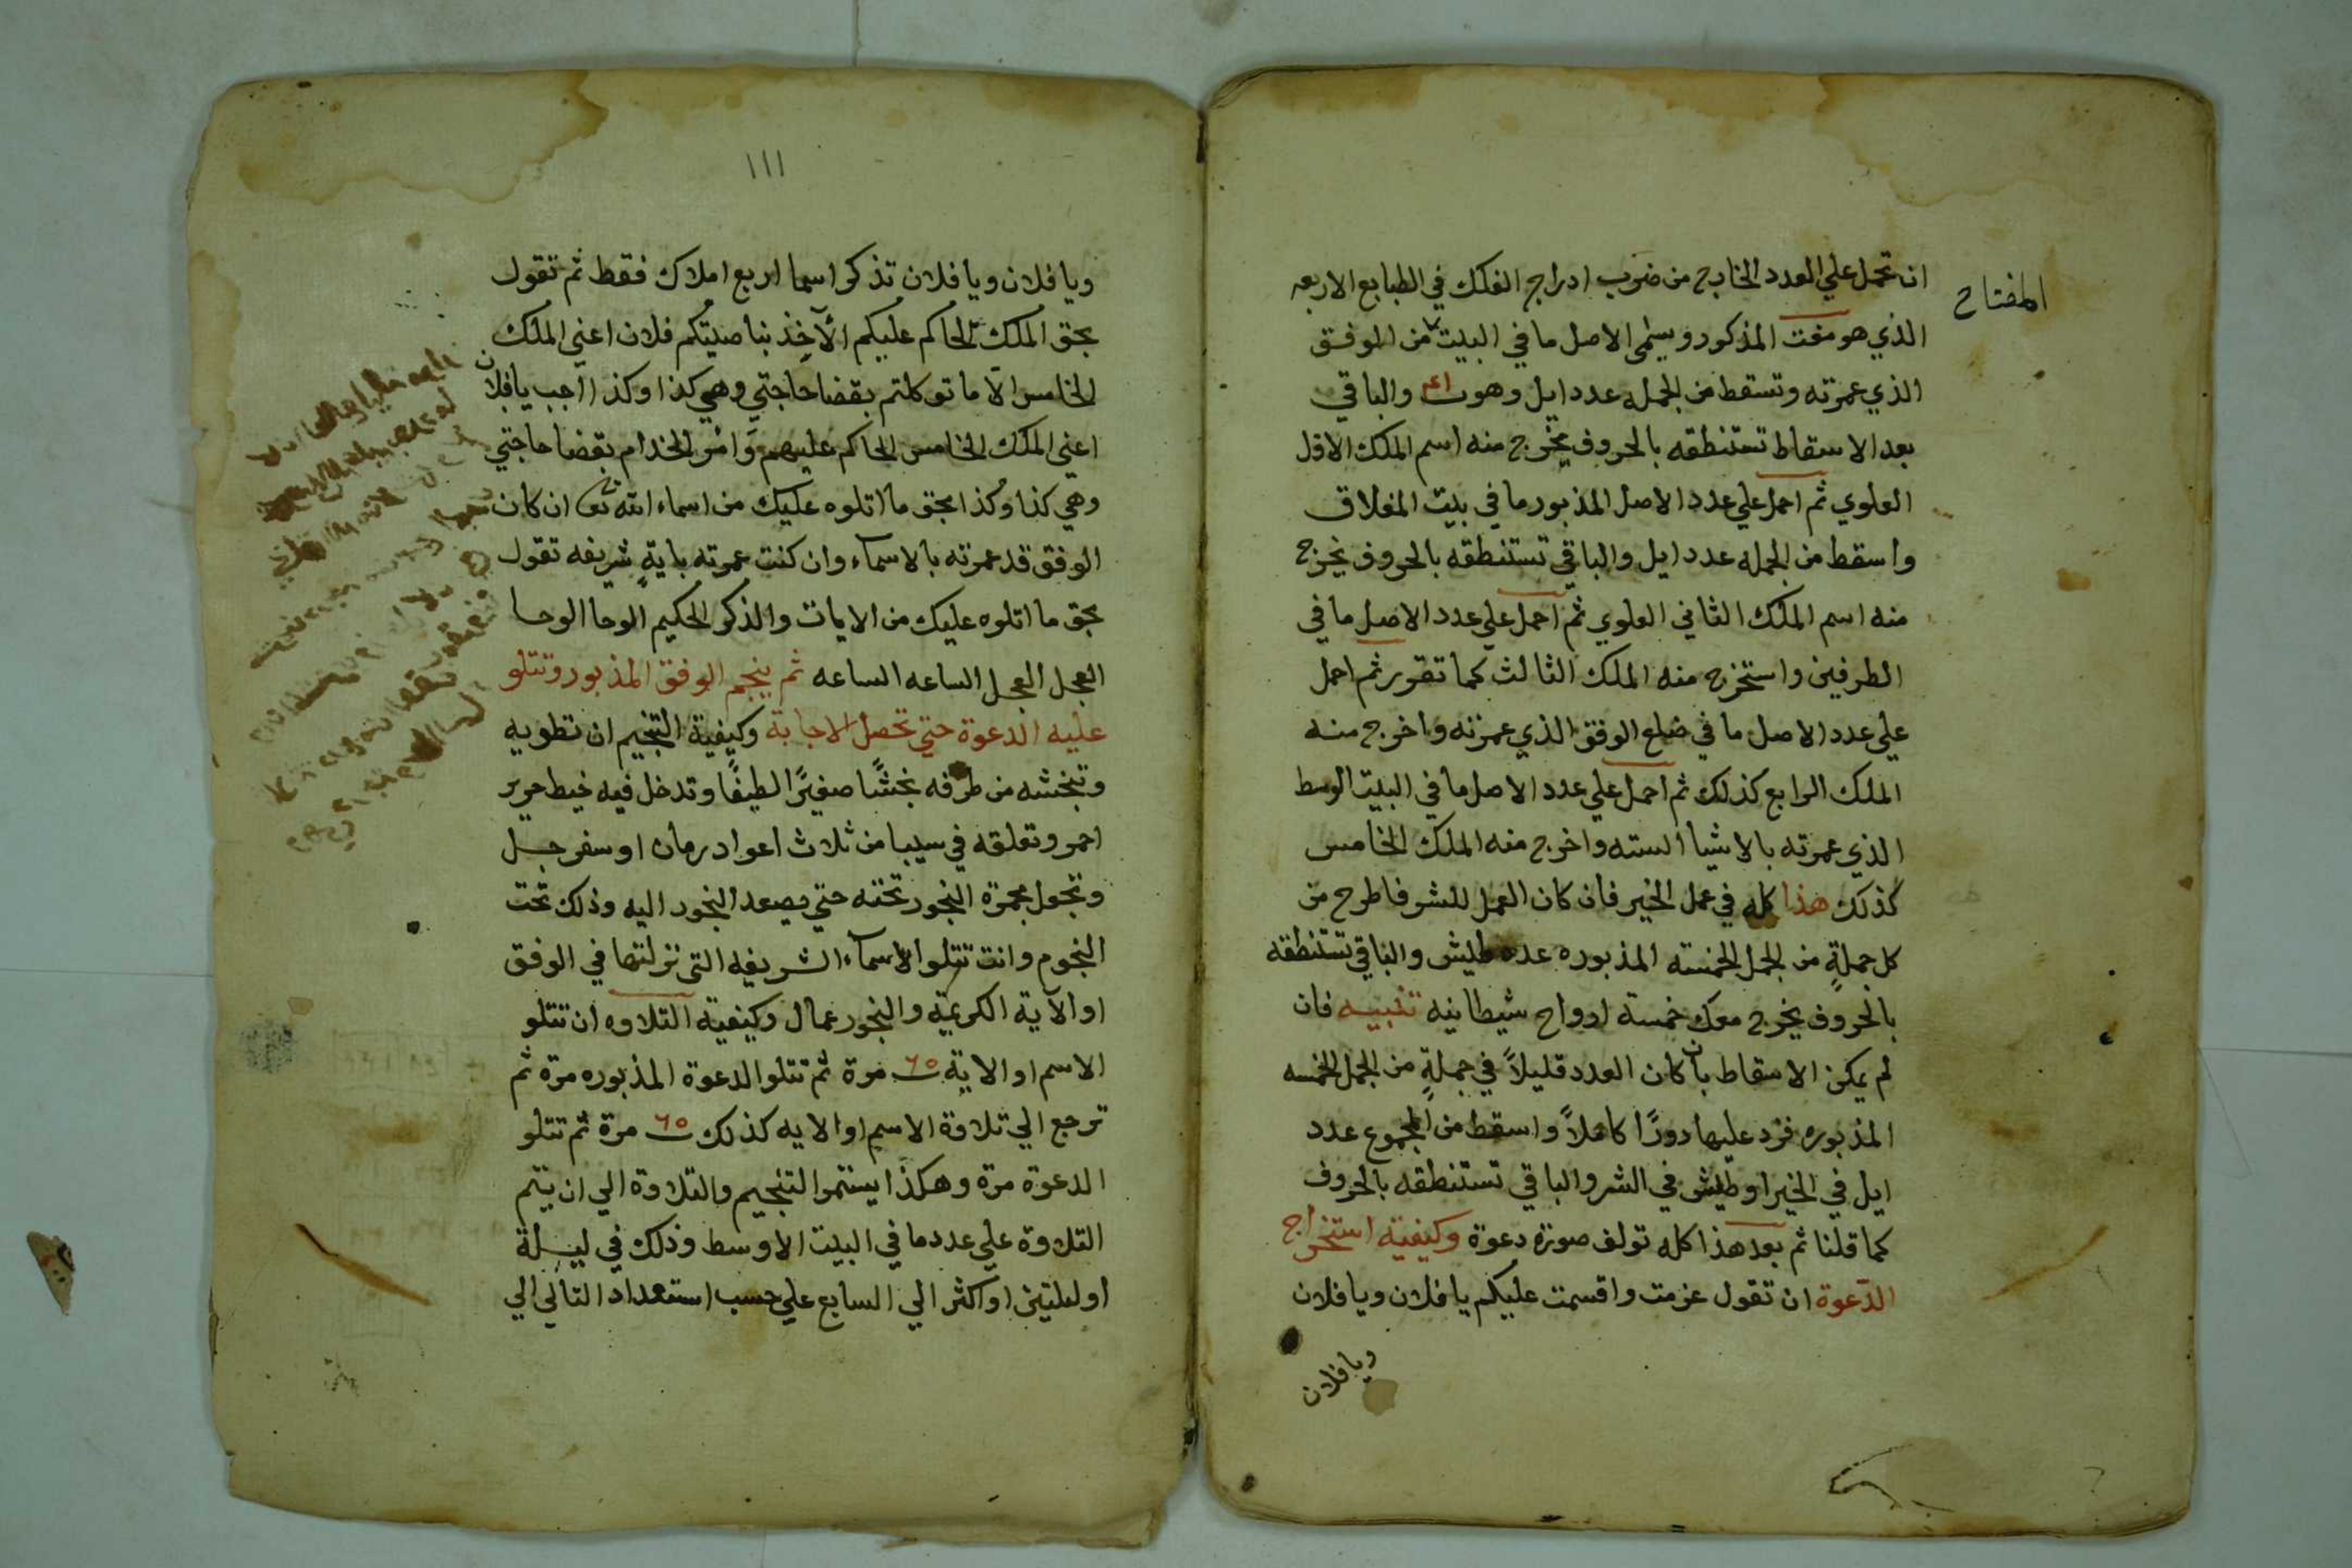 المفتاح
ان تحمل علي العدد الخارج من ضرب ادراج الفلك في الطبايع الاربعه
الذي هو مفت المذكور ويسمى الاصل ما في البيت من الوفق
الذي عمرته وتسقط من الجمله عدد ايل وهو ٤١ والباقي
بعد الاسقاط تستنطقه بالحروف يخرج منه اسم الملك الاول
العلوي ثم احمل علي عدد الاصل المذبور ما في بيت المغلاق
واسقط من الجمله عدد ايل والباقي تستنطقه بالحروف يخرج
منه اسم الملك الثاني العلوي ثم احمل علي عدد الاصل ما في
الطرفين واستخرج منه الملك الثالث كما تقرر ثم احمل
علي عدد الاصل ما في ضلع الوفق الذي عمرته واخرج منه
الملك الرابع كذلك ثم احمل علي عدد الاصل ما في البيت الوسط
الذي عمرته بالاشيا السته واخرج منه الملك الخامس
كذلك هذا كله في عمل الخير فان كان العمل للشر فاطرح من
كل جملةٍ من الجمل الخمسته المذبوره عدد طيش والباقي تستنطقه
بالحروف يخرج معك خمسة ارواح شيطانيه تنبيه فان
لم يمكن الاسقاط بان كان العدد قليلاً في جملةٍ من الجمل الخمسه
المذبوره فزد عليها دورًا كاملاً واسقط من المجموع عدد
ايل في الخير او طيش في الشر والباقي تستنطقه بالحروف
كما قلنا ثم بعد هذا كله تولف صورة دعوة وكيفية استخراج
الدعوة ان تقول عزمت واقسمت عليكم يا فلان ويا فلان
ويا فلان
١١١
ويا فلان ويا فلان تذكر اسما اربع املاك فقط ثم تقول
بحق الملك الحاكم عليكم الآخذ بناصيتكم فلان اعني الملك
الخامس الّا ما توكلتم بقضا حاجتي وهي كذا وكذا اجب يا فلان
اعني الملك الخامس الحاكم عليهم وَامُر الخدام بقضا حاجتي
وهي كذا وكذا بحق ما اتلوه عليك من اسماء الله تعا ان كان
الوفق قد عمرته بالاسماء وان كنت عمرته بايةٍ شريفه تقول
بحق ما اتلوه عليك من الايات والذكر الحكيم الوحا الوحا
العجل العجل الساعه الساعه ثم ينجم الوفق المذبور وتتلو
عليه الدعوة حتي تحصل الاجابة وكيفية التنجيم ان تطويه
وتبخشه من طرفه بخشًا صغيرًا لطيفًا وتدخل فيه خيط حرير
احمر وتعلقه في سيبا من ثلاث اعواد رمان او سفرجل
وتجعل مجمرة البخور تحته حتي يصعد البخور اليه وذلك تحت
النجوم وانت تتلوا الاسماء الشريفه التي نزلتها في الوفق
او الآية الكريمة والبخور عمال وكيفية التلاوه ان تتلو
الاسم او الاية ٦٥ مرة ثم تتلو الدعوة المذبوره مرة ثم
ترجع الي تلاوة الاسم او الايه كذلك ٦٥ مرة ثم تتلو
الدعوة مرة وهكذا يستمر التنجيم والتلاوة الي ان يتم
التلاوة علي عدد ما في البيت الاوسط وذلك في ليلة
او ليلتين او اكثر الي السابع علي حسب استعداد التالي الي